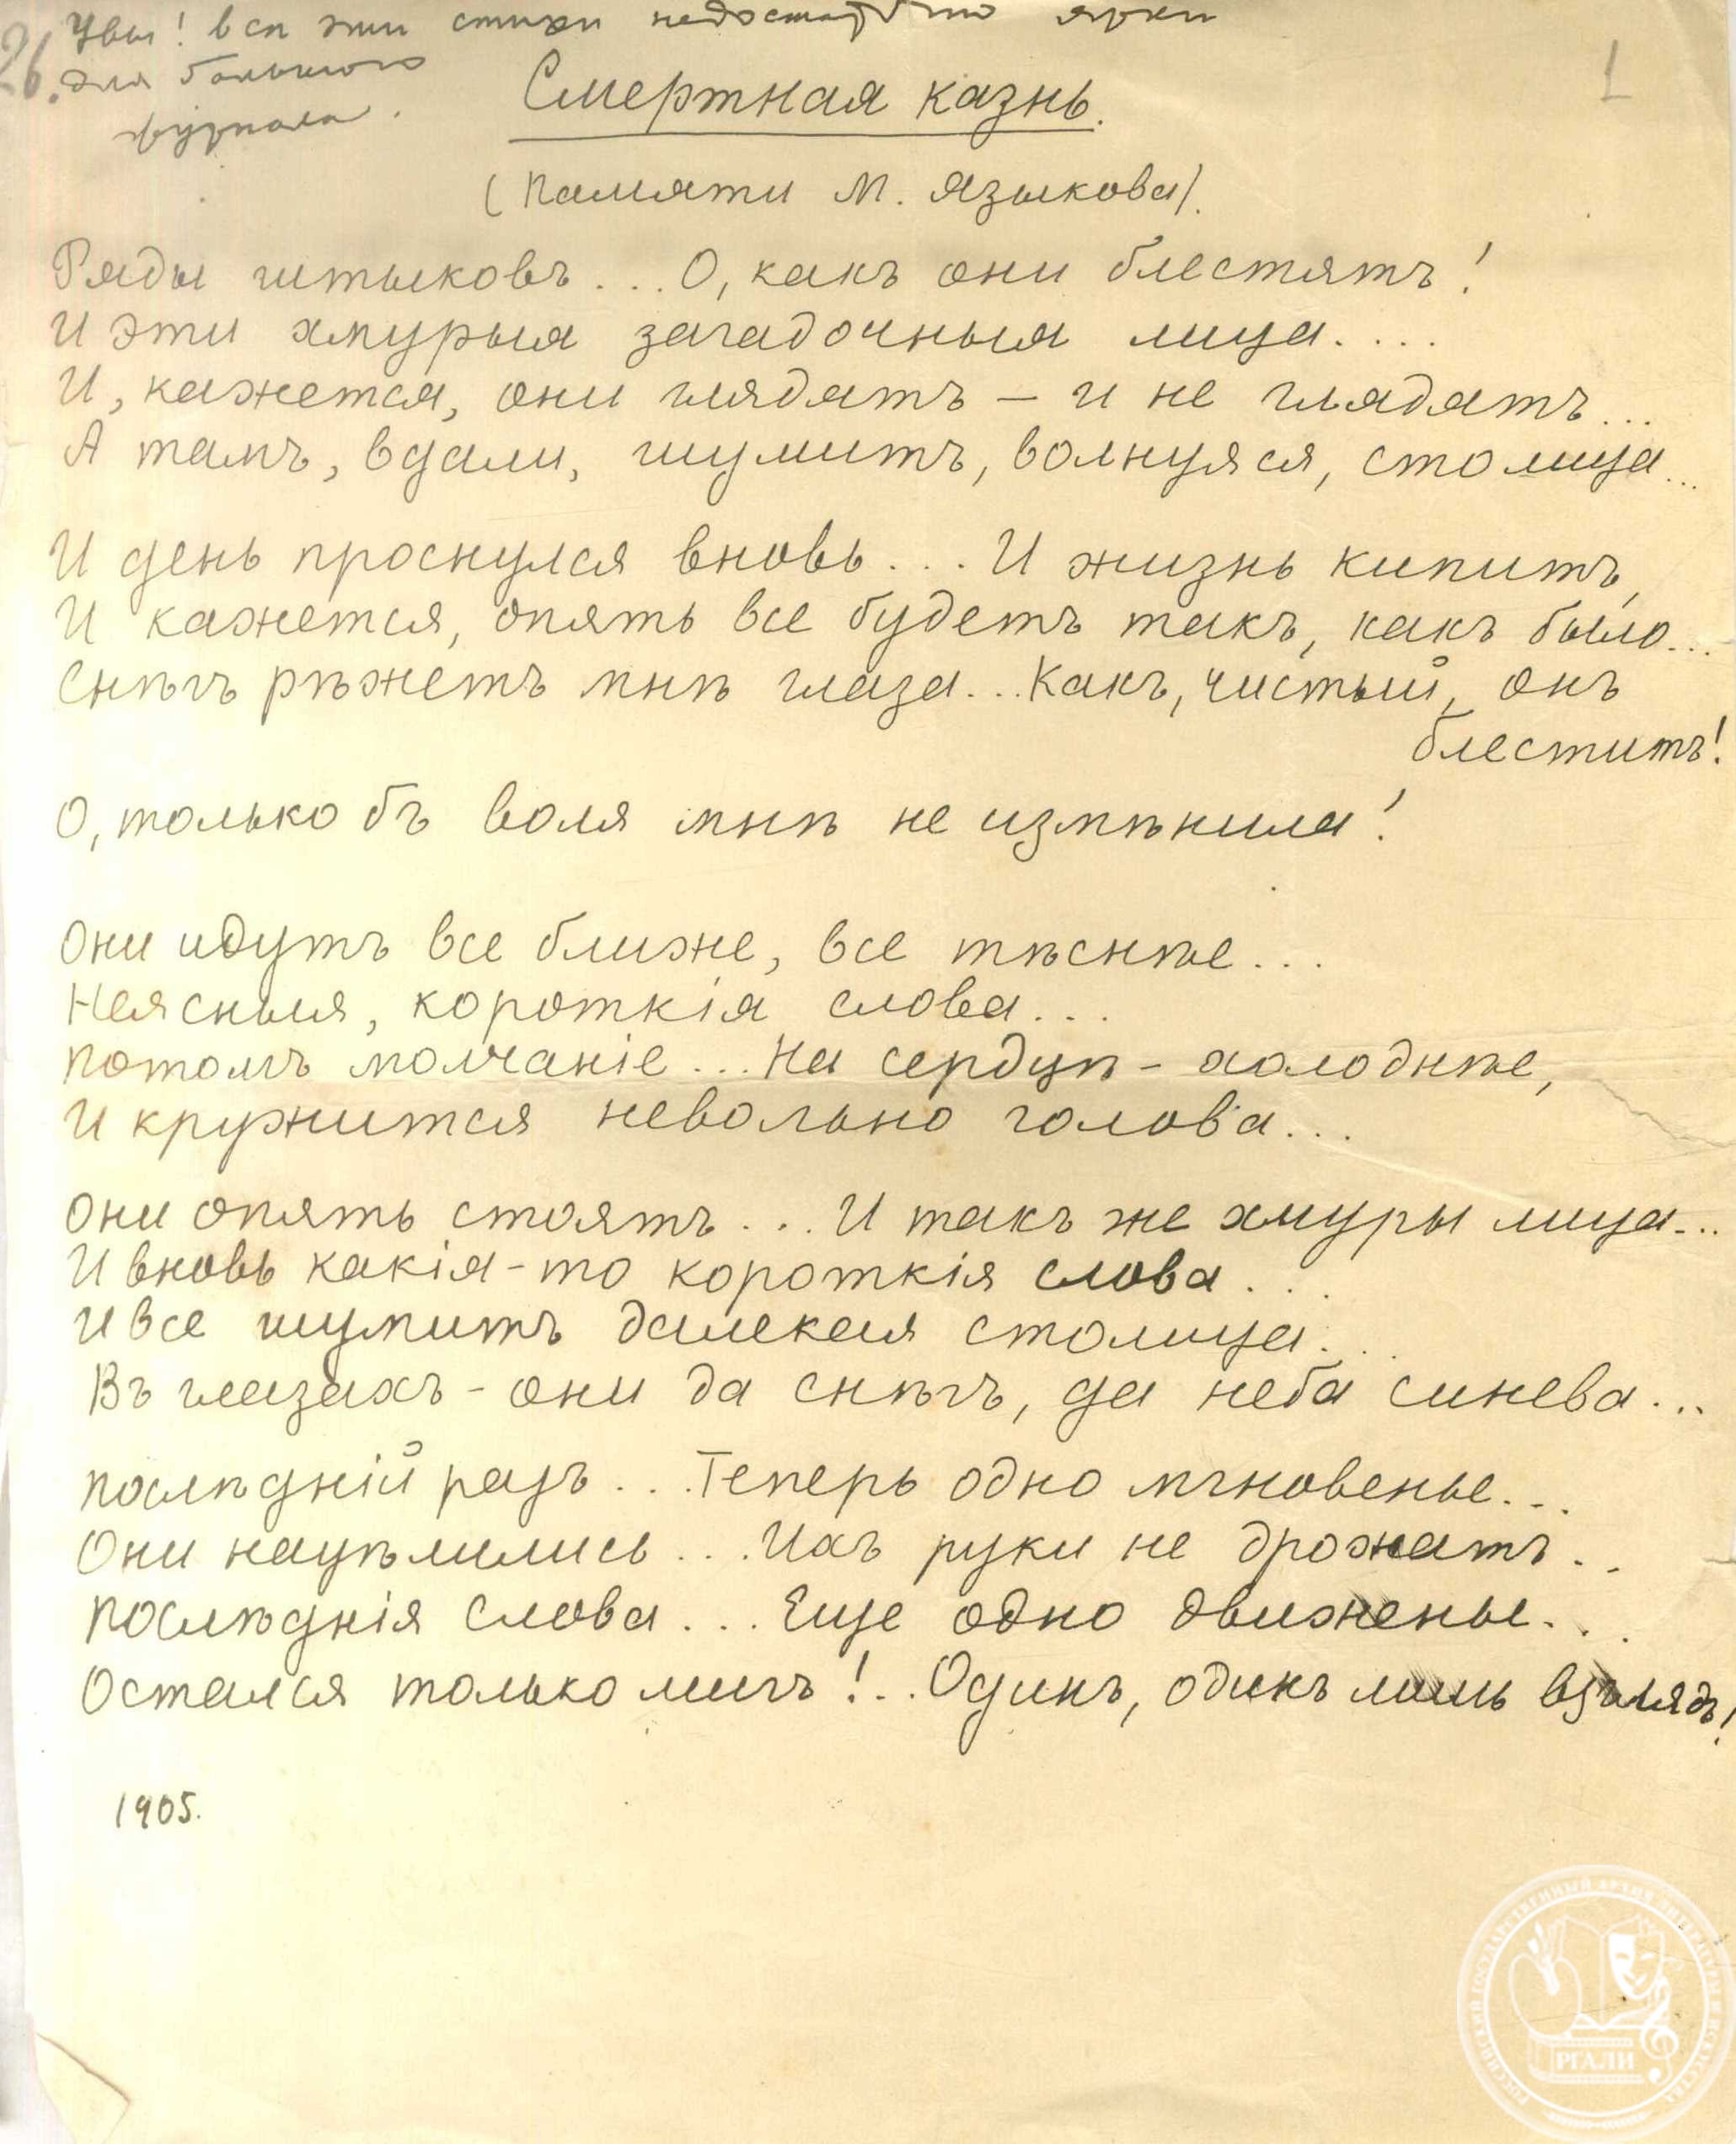 Увы! всѣ эти стихи недостаточно ярки
26. для большого
журнала.
1
Смертная казнь.
(Памяти М. Языкова).
Ряды штыковъ... О, какъ они блестятъ!
И эти хмурыя загадочныя лица....
И, кажется, они глядятъ – и не глядятъ...
А тамъ, вдали, шумитъ, волнуяся, столица...
И день проснулся вновь... И жизнь кипитъ,
И кажется, опять все будетъ такъ, какъ было...
Снѣгъ рѣжетъ мнѣ глаза... Какъ, чистый, онъ
блеститъ!
О, только бъ воля мнѣ не измѣнила!
Они идутъ все ближе, все тѣснѣе...
Неясныя, короткія слова...
Потомъ молчаніе... На сердцѣ – холоднѣе,
И кружится невольно голова...
Они опять стоятъ... И такъ же хмуры лица...
И вновь какія-то короткія слова...
И все шумитъ далекая столица...
Въ глазахъ – они да снѣгъ, да неба синева...
Послѣдній разъ... Теперь одно мгновенье...
Они нацѣлились... Ихъ руки не дрожатъ..
Послѣднія слова... Еще одно движенье...
Остался только мигъ!.. Одинъ, одинъ лишь взглядъ!
1905.
РОССИЙСКИЙ ГОСУДАРСТВЕННЫЙ АРХИВ ЛИТЕРАТУРЫ И ИСКУССТВА
РГАЛИ